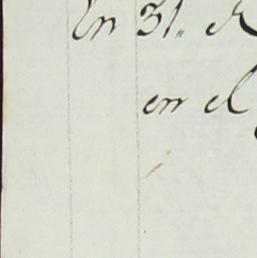 En 31. de
en el